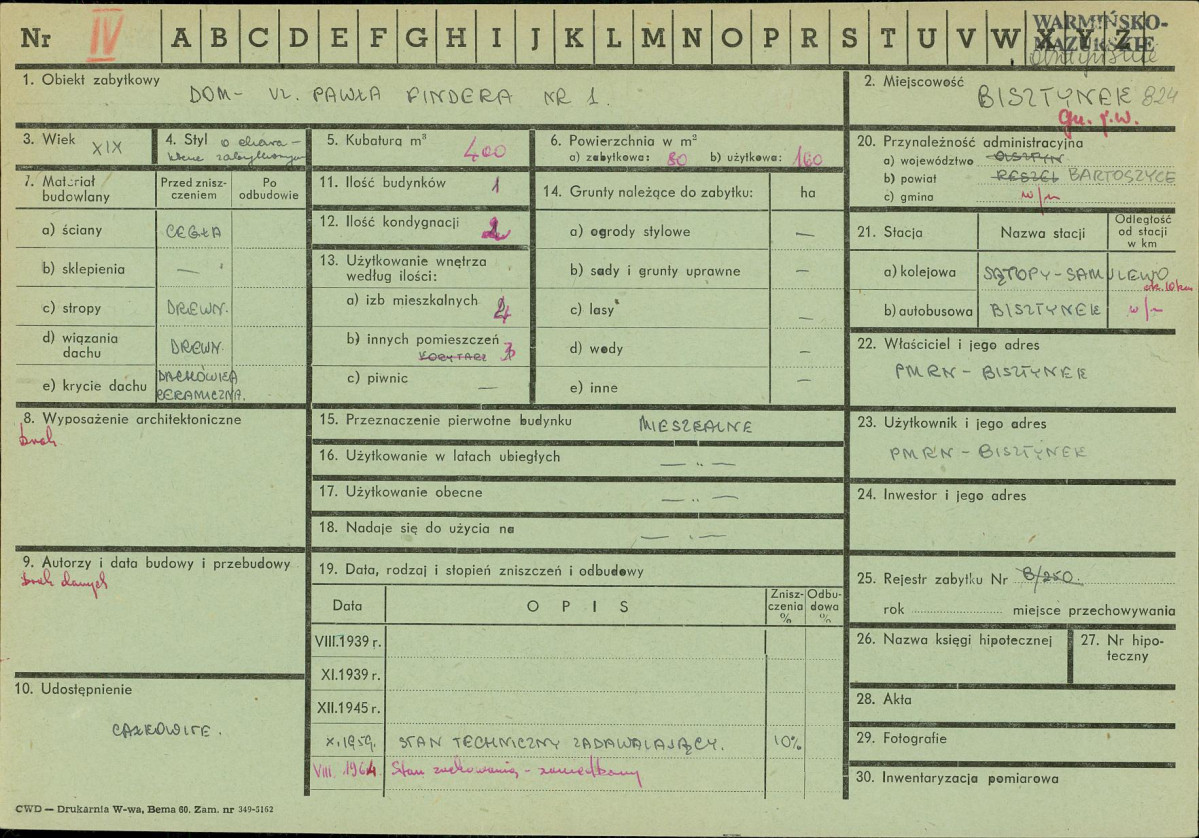 Nr IV A B C D E F G H I J K L M N O P R S T U V W X Y Z
WARMIŃSKO-
MAZURSKIE
1. Obiekt zabytkowy
DOM - UL. PAWŁA FINDERA NR 1.
2. Miejscowość
BISZTYNEK 824
Gm. j.w.
3. Wiek XIX
4. Styl o charak-
terze zabytkowym
5. Kubatura m³
400
6. Powierzchnia w m²
a) zabytkowa: 80 b) użytkowa: 160
20. Przynależność administracyjna
a) województwo OLSZTYN
b) powiat RESZEL BARTOSZYCE
c) gmina w/m
7. Materiał
budowlany
Przed znisz-
czeniem
Po
odbudowie
a) ściany CEGŁA
b) sklepienia —
c) stropy DREWN.
d) wiązania
dachu DREWN.
e) krycie dachu DACHÓWKA
CERAMICZNA.
11. Ilość budynków 1
12. Ilość kondygnacji 2
13. Użytkowanie wnętrza
według ilości:
a) izb mieszkalnych 4
b) innych pomieszczeń
KORYTARZ 3
c) piwnic —
14. Grunty należące do zabytku: ha
a) ogrody stylowe —
b) sady i grunty uprawne —
c) lasy —
d) wody —
e) inne —
21. Stacja
Nazwa stacji
Odległość
od stacji
w km
a) kolejowa SĄTOPY-SAMULEWO ok. 10 km
b) autobusowa BISZTYNEK w/m
22. Właściciel i jego adres
PMRN - BISZTYNEK
8. Wyposażenie architektoniczne
brak
15. Przeznaczenie pierwotne budynku MIESZKALNE
16. Użytkowanie w latach ubiegłych — „ —
17. Użytkowanie obecne — „ —
18. Nadaje się do użycia na — „ —
23. Użytkownik i jego adres
PMRN - BISZTYNEK
24. Inwestor i jego adres
9. Autorzy i data budowy i przebudowy
brak danych
19. Data, rodzaj i stopień zniszczeń i odbudowy
Data
OPIS
Znisz-
czenia
%
Odbu-
dowa
%
VIII.1939 r.
XI.1939 r.
XII.1945 r.
X.1959. STAN TECHNICZNY ZADAWALAJĄCY. 10%
VIII. 1964 Stan zachowania - zaniedbany
25. Rejestr zabytku Nr B/250.
rok miejsce przechowywania
26. Nazwa księgi hipotecznej
27. Nr hipo-
teczny
28. Akta
29. Fotografie
30. Inwentaryzacja pomiarowa
10. Udostępnienie
CAŁKOWITE.
CWD — Drukarnia W-wa, Bema 60. Zam. nr 349-5162